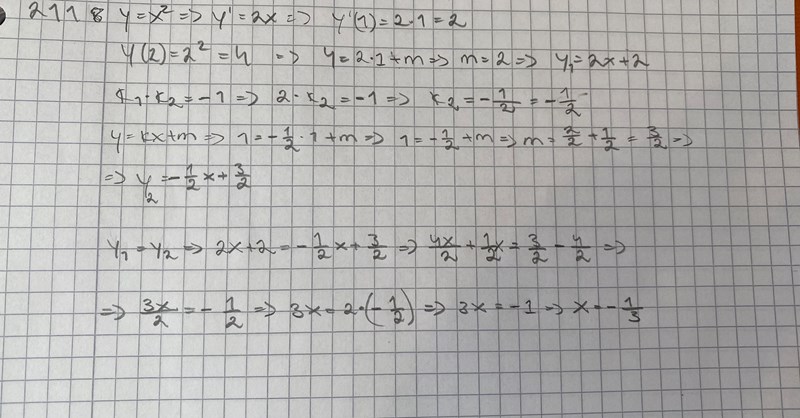 2118 y=x² => y'=2x => y'(1)=2·1=2
y(2)=2²=4 => y=2·1+m => m=2 => y₁=2x+2
k₁·k₂=-1 => 2·k₂=-1 => k₂=-1/2=-1/2
y=kx+m => 1=-1/2·1+m => 1=-1/2+m => m=2/2+1/2=3/2 =>
=> y₂=-1/2x+3/2
y₁=y₂ => 2x+2=-1/2x+3/2 => 4x/2+1/2x=3/2-4/2 =>
=> 3x/2=-1/2 => 3x=2·(-1/2) => 3x=-1 => x=-1/3